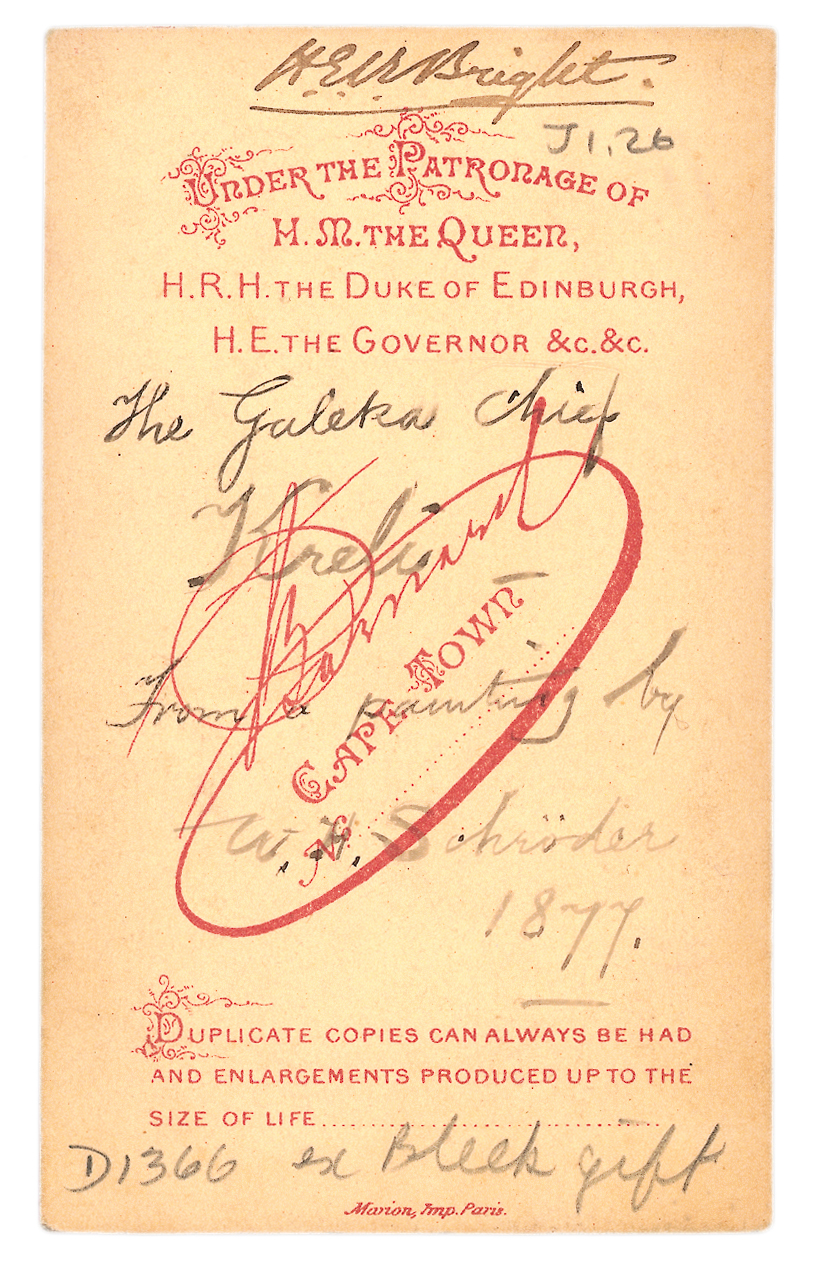 H.E.R. Bright.
J1.26
UNDER THE PATRONAGE OF
H. M. THE QUEEN,
H.R.H. THE DUKE OF EDINBURGH,
H.E. THE GOVERNOR &C. &C.
The Galeka chief
Kreli
Barnard
CAPE TOWN
No
From a painting by
W. H. Schröder
1877.
DUPLICATE COPIES CAN ALWAYS BE HAD
AND ENLARGEMENTS PRODUCED UP TO THE
SIZE OF LIFE
D1366 ex Bleek gift
Marion, Imp. Paris.